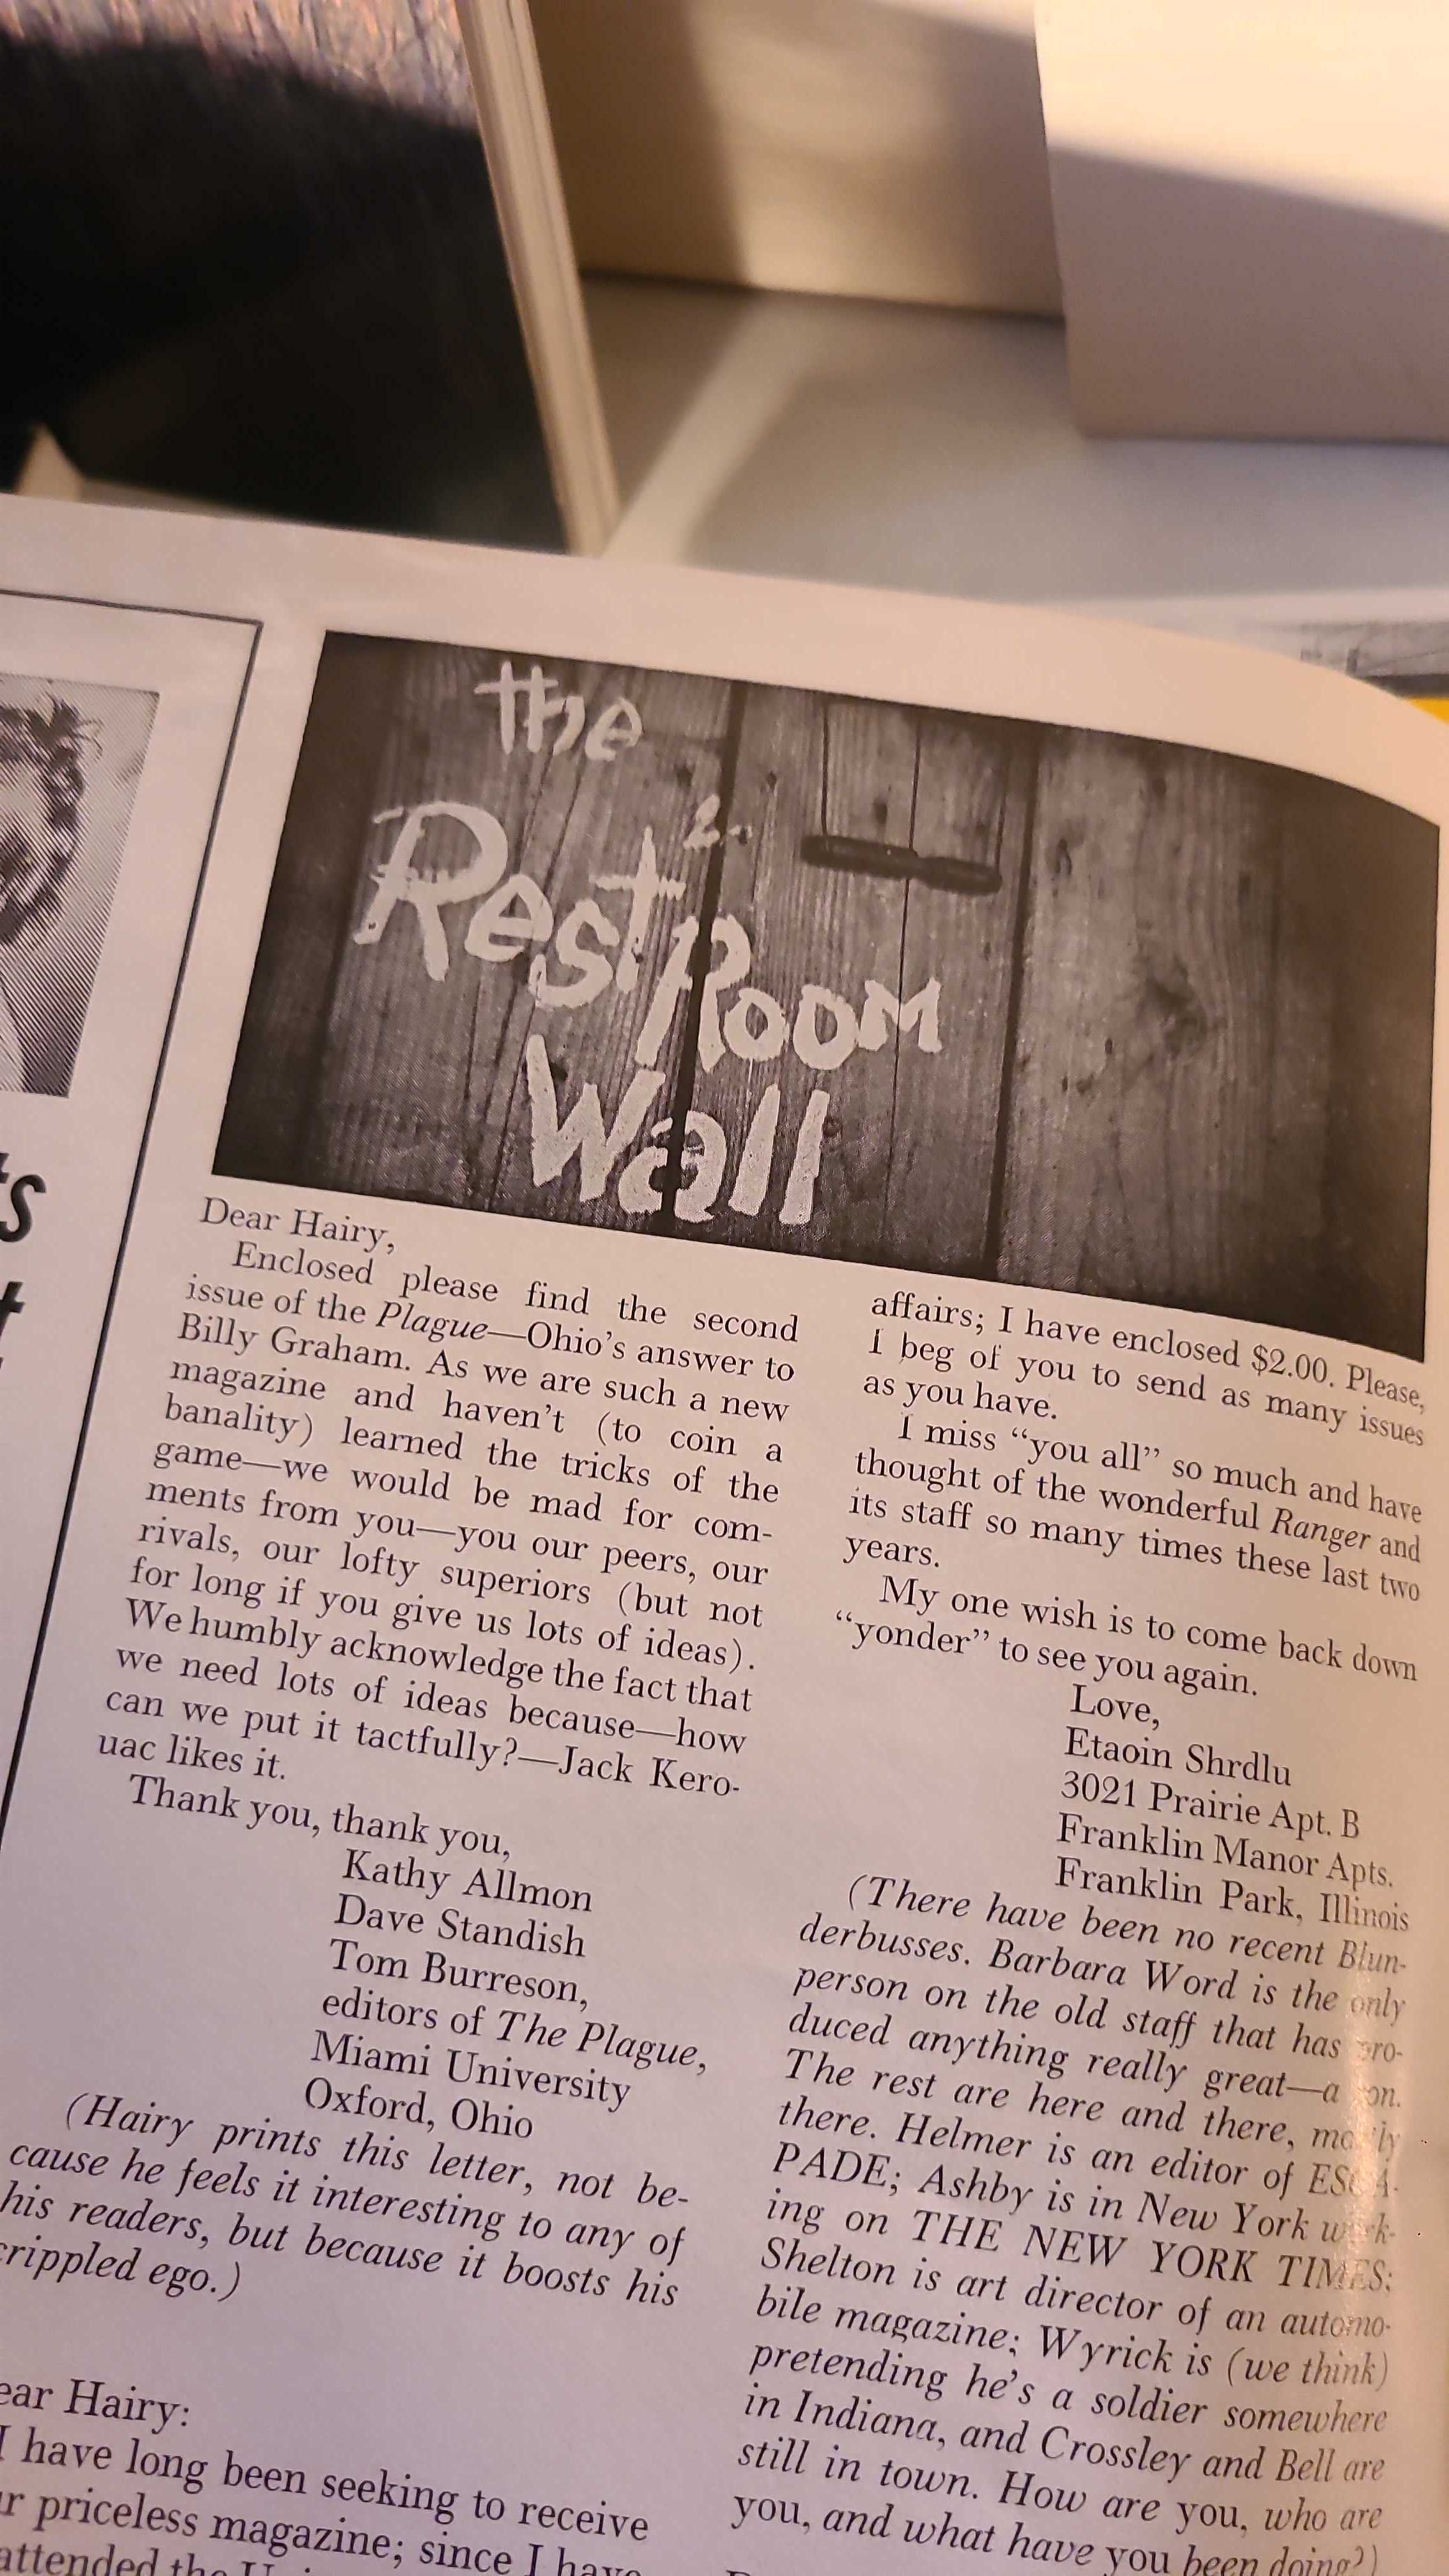 the
Rest Room
Wall
Dear Hairy,
Enclosed please find the second
issue of the Plague—Ohio's answer to
Billy Graham. As we are such a new
magazine and haven't (to coin a
banality) learned the tricks of the
game—we would be mad for com-
ments from you—you our peers, our
rivals, our lofty superiors (but not
for long if you give us lots of ideas).
We humbly acknowledge the fact that
we need lots of ideas because—how
can we put it tactfully?—Jack Kero-
uac likes it.
Thank you, thank you,
Kathy Allmon
Dave Standish
Tom Burreson,
editors of The Plague,
Miami University
Oxford, Ohio
(Hairy prints this letter, not be-
cause he feels it interesting to any of
his readers, but because it boosts his
crippled ego.)
ear Hairy:
I have long been seeking to receive
ur priceless magazine; since I have
attended the
affairs; I have enclosed $2.00. Please,
I beg of you to send as many issues
as you have.
I miss "you all" so much and have
thought of the wonderful Ranger and
its staff so many times these last two
years.
My one wish is to come back down
"yonder" to see you again.
Love,
Etaoin Shrdlu
3021 Prairie Apt. B
Franklin Manor Apts.
Franklin Park, Illinois
(There have been no recent Blun-
derbusses. Barbara Word is the only
person on the old staff that has pro-
duced anything really great—a son.
The rest are here and there, mostly
there. Helmer is an editor of ESCA-
PADE; Ashby is in New York work-
ing on THE NEW YORK TIMES;
Shelton is art director of an automo-
bile magazine; Wyrick is (we think)
pretending he's a soldier somewhere
in Indiana, and Crossley and Bell are
still in town. How are you, who are
you, and what have you been doing?)